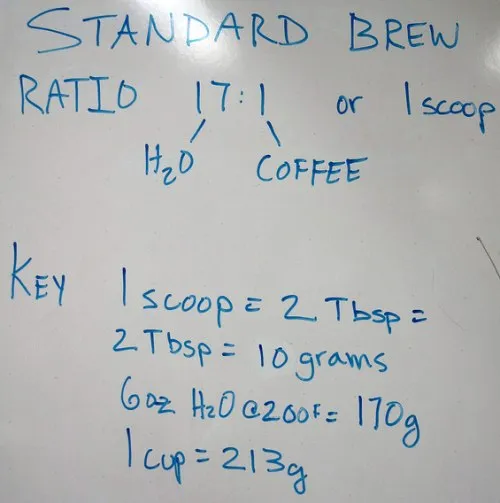 STANDARD BREW
RATIO 17:1 or 1 scoop
H₂O COFFEE
KEY 1 scoop = 2 Tbsp =
2 Tbsp = 10 grams
6oz H₂O @ 200F = 170g
1 cup = 213g